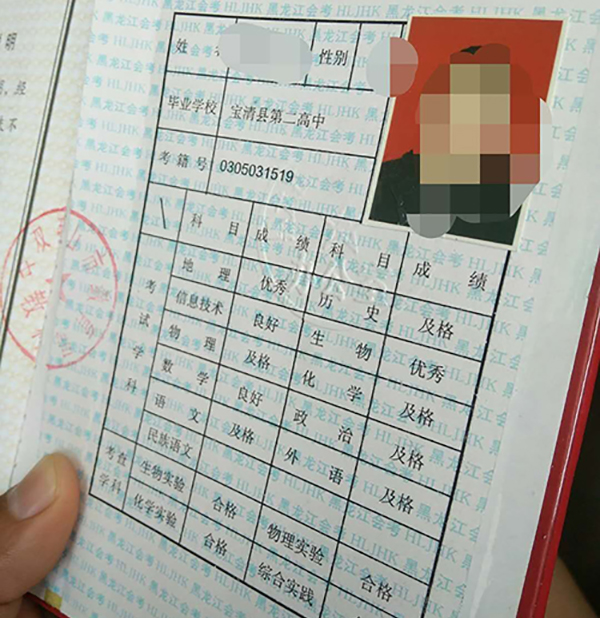 明
经
不
姓
性别
毕业学校 宝清县第二高中
考籍号 0305031519
科目 成绩 科目 成绩
考试学科
地理 优秀 历史 及格
信息技术 良好 生物 优秀
物理 及格 化学 及格
数学 良好 政治 及格
语文 及格 外语 及格
民族语文
考查学科
生物实验 合格 物理实验 合格
化学实验 合格 综合实践
黑龙江会考 HLJHK